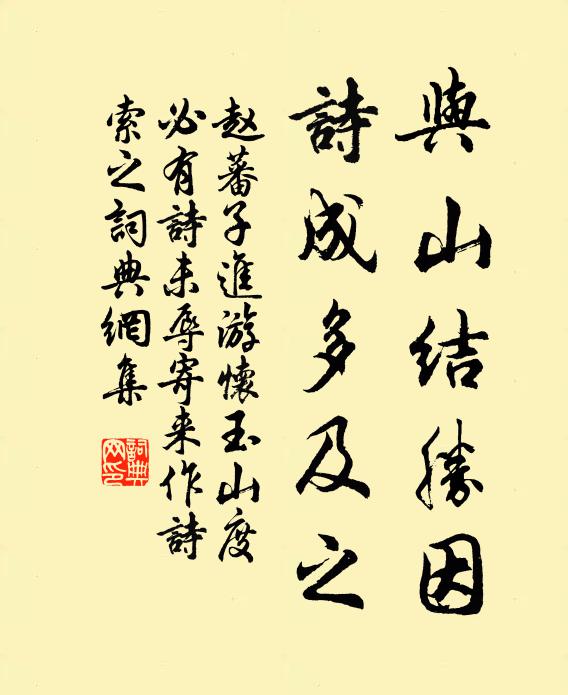 與山結勝因
詩成多及之
赵蕃子進游懷玉山度
必有詩未辱寄来作詩
索之詞典網集
詞典网印